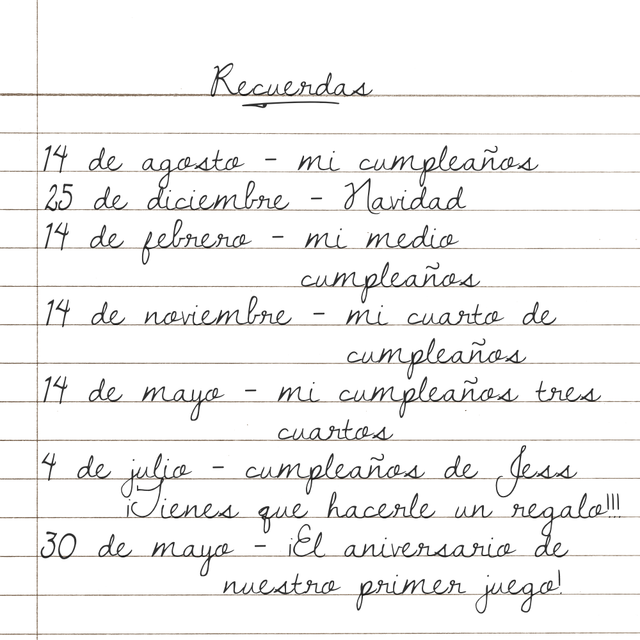 Recuerdas
14 de agosto - mi cumpleaños
25 de diciembre - Navidad
14 de febrero - mi medio
cumpleaños
14 de noviembre - mi cuarto de
cumpleaños
14 de mayo - mi cumpleaños tres
cuartos
4 de julio - cumpleaños de Jess
¡Tienes que hacerle un regalo!!!
30 de mayo - ¡El aniversario de
nuestro primer juego!